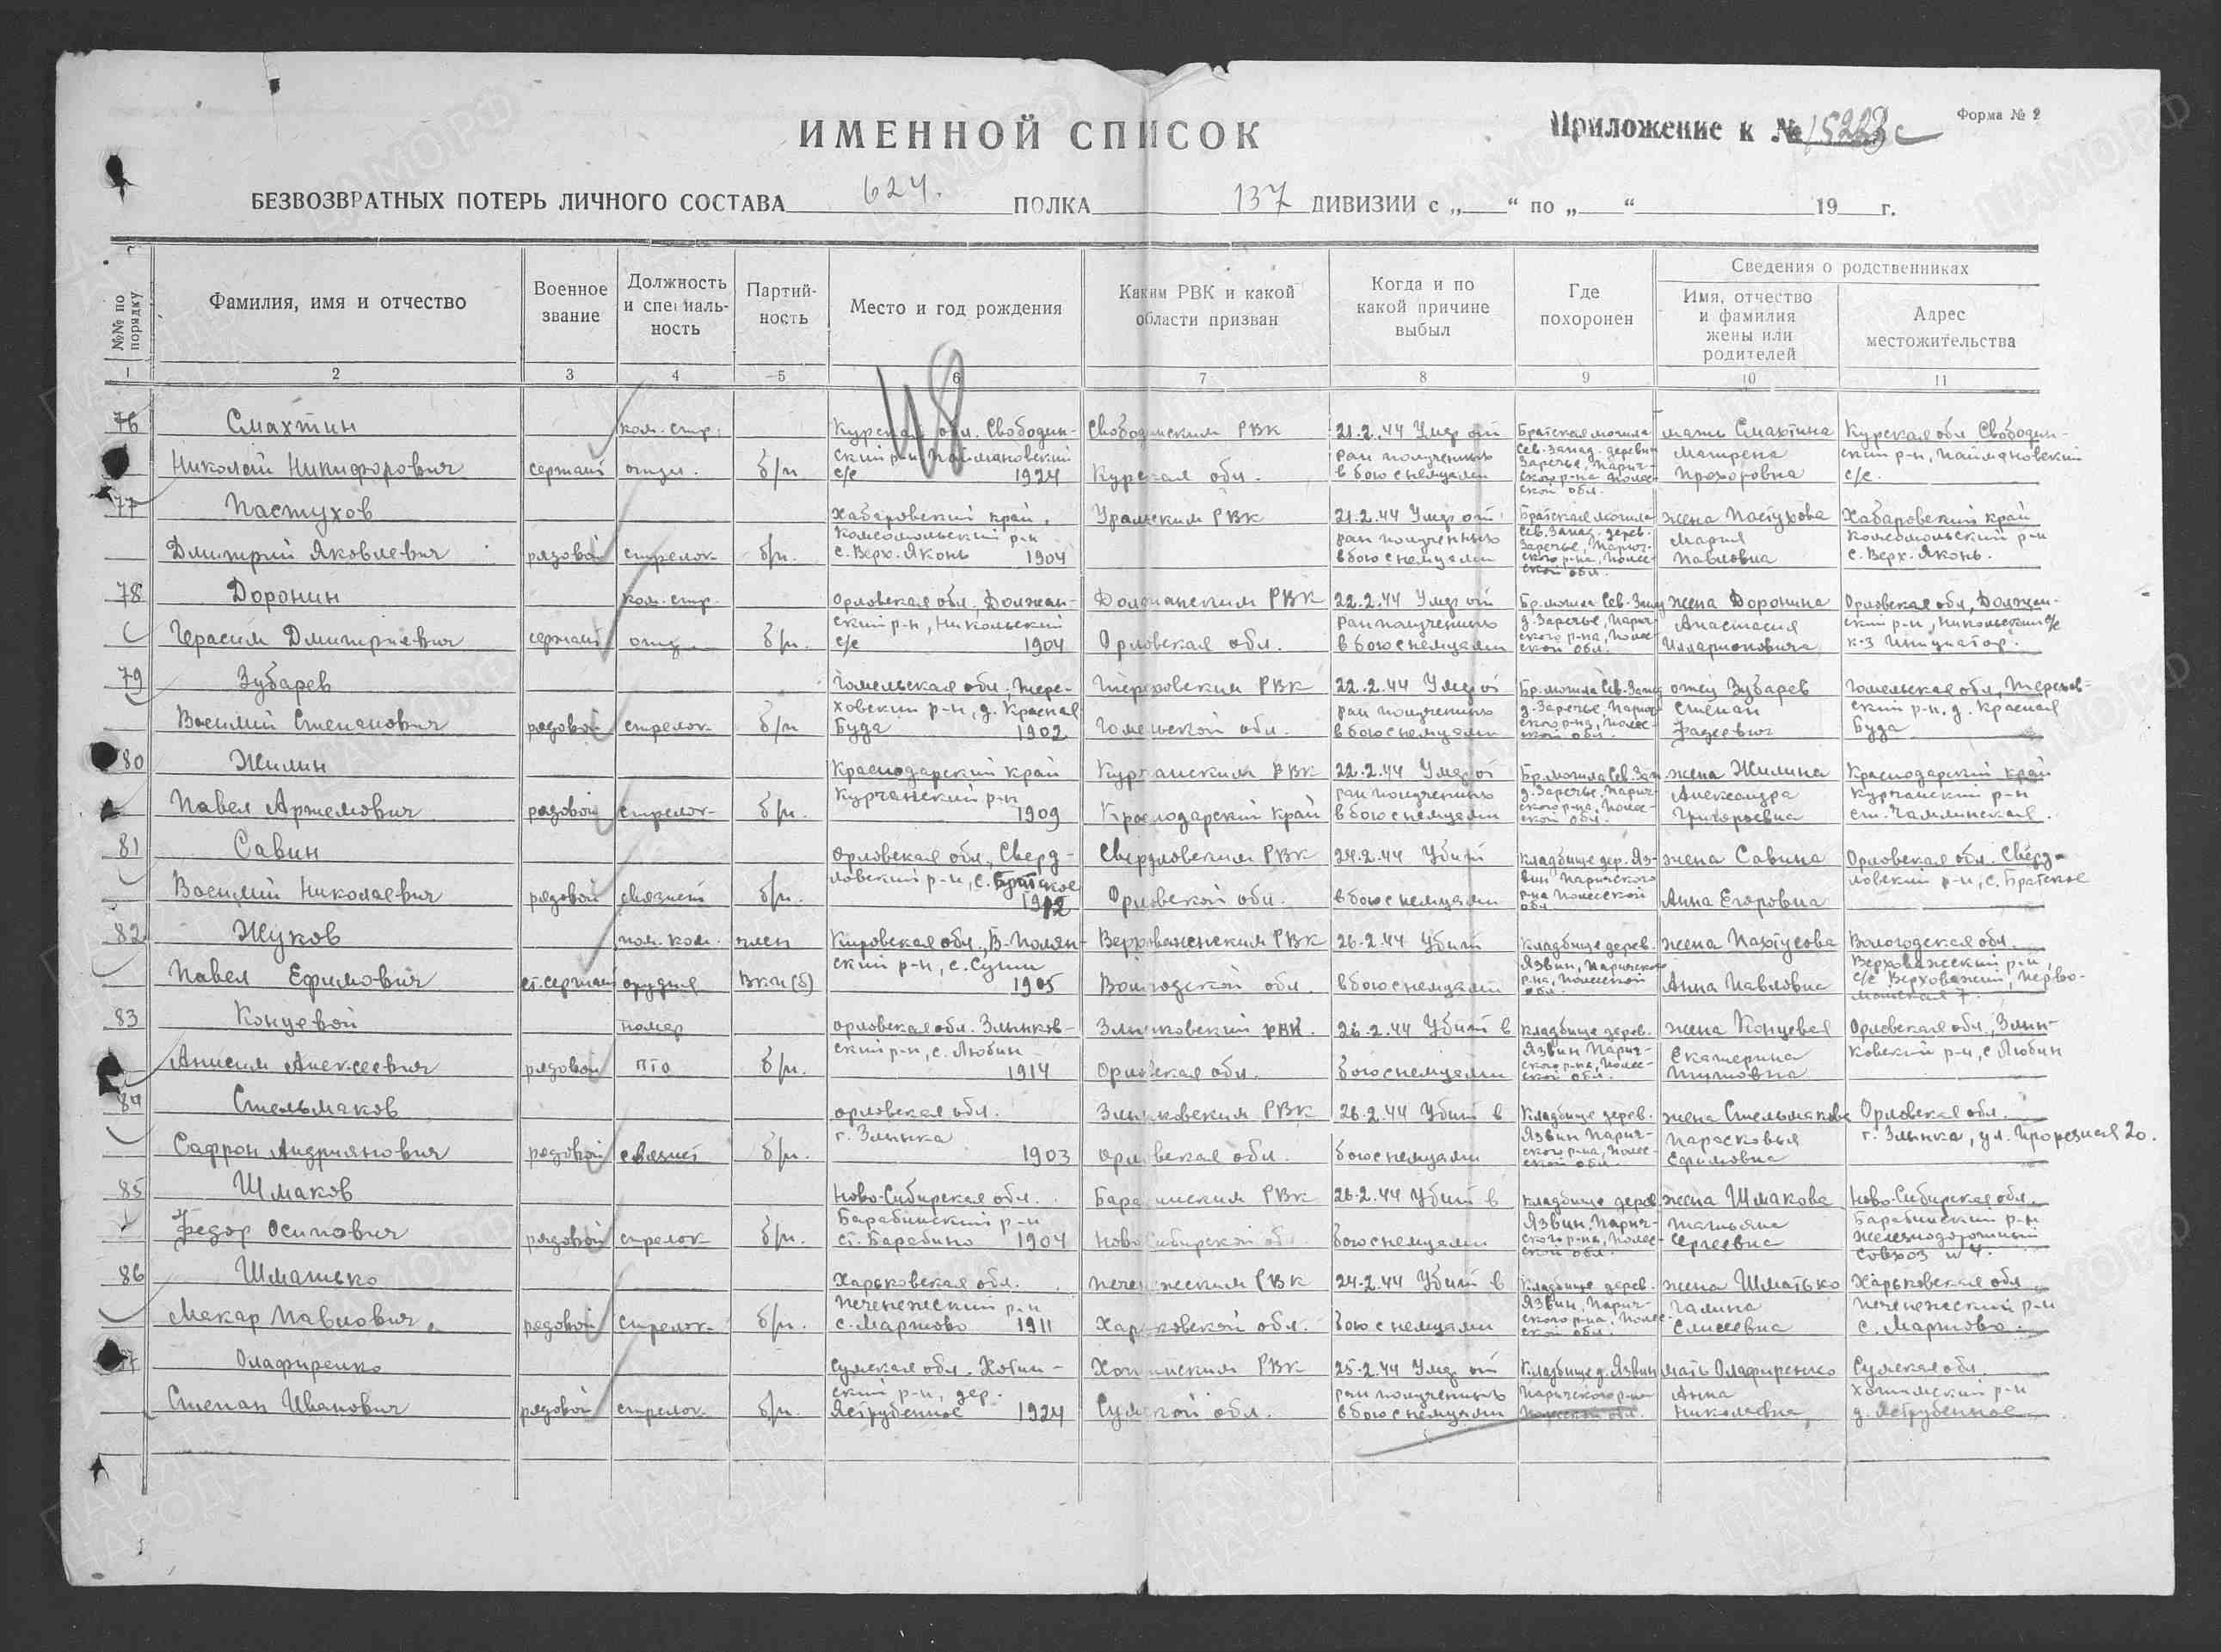 ИМЕННОЙ СПИСОК
Приложение к № 15223с
Форма № 2
БЕЗВОЗВРАТНЫХ ПОТЕРЬ ЛИЧНОГО СОСТАВА 624. ПОЛКА 137 ДИВИЗИИ с „ “ по „ “ 19 г.
№№ по порядку
Фамилия, имя и отчество
Военное звание
Должность и специальность
Партийность
Место и год рождения
Каким РВК и какой области призван
Когда и по какой причине выбыл
Где похоронен
Сведения о родственниках
Имя, отчество и фамилия жены или родителей
Адрес местожительства
1 2 3 4 5 6 7 8 9 10 11
76 Смахтин ком. стр. Курская обл. Свободин- Свободинским РВК 21.2.44 Умер от Братская могила мать Смахтина Курская обл. Свободин-
Николай Никифорович сержант отдел. б/п ский р-н Паймановский с/с 1924 Курская обл. ран полученных в бою с немцами Сев. Запад. деревни Заречье, Парич- ского р-на Полес- ской обл. Матрена Прохоровна ский р-н, Паймановский с/с.
77 Пастухов Хабаровский край, Уральским РВК 21.2.44 Умер от Братская могила жена Пастухова Хабаровский край
Дмитрий Яковлевич рядовой стрелок б/п. Комсомольский р-н с. Верх. Яконь 1904 ран полученных в бою с немцами Сев. Запад. дерев. Заречье, Парич- ского р-на, Полес- ской обл. Мария Павловна Комсомольский р-н с. Верх. Яконь.
78 Доронин ком. стр. Орловская обл., Должан- Должанским РВК 22.2.44 Умер от Бр. могила Сев. Запад жена Доронина Орловская обл, Должан-
Герасим Дмитриевич сержант отд. б/п. ский р-н, Никольский с/с 1904 Орловская обл. ран полученных в бою с немцами д. Заречье, Парич- ского р-на, Полес- ской обл. Анастасия Илларионовича ский р-н, Никольский с/с к-з Инициатор.
79 Зубарев Гомельская обл., Тере- Тереховским РВК 22.2.44 Умер от Бр. могила Сев. Запад отец Зубарев Гомельская обл, Терехов-
Василий Степанович рядовой стрелок б/п ховский р-н, д. Красная Буда 1902 Гомельской обл. ран полученных в бою с немцами д. Заречье, Парич- ского р-на, Полес- ской обл. Степан Фадеевич ский р-н. д. Красная Буда
80 Жилин Краснодарский край Курганским РВК 22.2.44 Умер от Бр. могила Сев. Зап жена Жилина Краснодарский край
Павел Артемович рядовой стрелок б/п. Курганский р-н 1909 Краснодарский край ран полученных в бою с немцами д. Заречье, Парич- ского р-на, Полес- ской обл. Александра Григорьевна Курганский р-н ст. Чамлинская.
81 Савин Орловская обл., Сверд- Свердловским РВК 24.2.44 Убит кладбище дер. Яз- жена Савина Орловская обл. Сверд-
Василий Николаевич рядовой связист б/п. ловский р-н, с. Братское 1912 Орловской обл. в бою с немцами вин Паричского р-на Полесской обл. Анна Егоровна ловский р-н, с. Братское
82 Жуков пом. ком. член Кировская обл., В-Полян- Верховажским РВК 26.2.44 Убит кладбище дерев. жена Вологодская обл.
Павел Ефимович ст. сержант орудия ВКП(б) ский р-н, с. Суши 1905 Вологодской обл. в бою с немцами Язвин, Паричского р-на, Полесской обл. Анна Павловна Верховажский р-н, с/с Верховажский, Перво- майская 7.
83 Концевой номер Орловская обл. Злынков- Злынковский РВК. 26.2.44 Убит в кладбище дерев. жена Концевая Орловская обл., Злын-
Анисим Алексеевич рядовой ПТО б/п. ский р-н, с. Любин 1914 Орловская обл. бою с немцами Язвин Парич- ского р-на, Полес- ской обл. Екатерина Титовна ковский р-н, с Любин
84 Стельмаков орловская обл. Злынковским РВК 26.2.44 Убит в кладбище дерев. жена Стельмакова Орловская обл.
Сафрон Андриянович рядовой связист б/п. г. Злынка 1903 Орловская обл. бою с немцами Язвин Парич- ского р-на, Полес- ской обл. Парасковья Ефимовна г. Злынка, ул. Прорезная 20.
85 Шмаков Ново-Сибирская обл. Барабинским РВК 26.2.44 Убит в кладбище дерев жена Шмакова Ново-Сибирская обл.
Федор Осипович рядовой стрелок б/п. Барабинский р-н ст. Барабино 1904 Новосибирской обл бою с немцами Язвин, Парич- ского р-на, Полес- ской обл. Татьяна Сергеевна Барабинский р-н Железнодорожный совхоз № 4.
86 Шматько Харьковская обл. Печенежским РВК 24.2.44 Убит в кладбище дерев. жена Шматько Харьковская обл
Макар Павлович. рядовой стрелок б/п. Печенежский р-н с. Мартово 1911 Харьковской обл. бою с немцами Язвин, Парич- ского р-на, Полес- ской обл. Галина Елисеевна Печенежский р-н с. Мартово.
87 Олафиренко Сумская обл. Хотин- Хотинским РВК 25.2.44 Умер от Кладбище д. Язвин мать Олафиренко Сумская обл.
Степан Иванович рядовой стрелок б/п. ский р-н, дер. Яструбенное 1924 Сумской обл. ран полученных в бою с немцами Паричского р-на Полесской обл. Анна Николаевна, Хотинский р-н д. Яструбенное